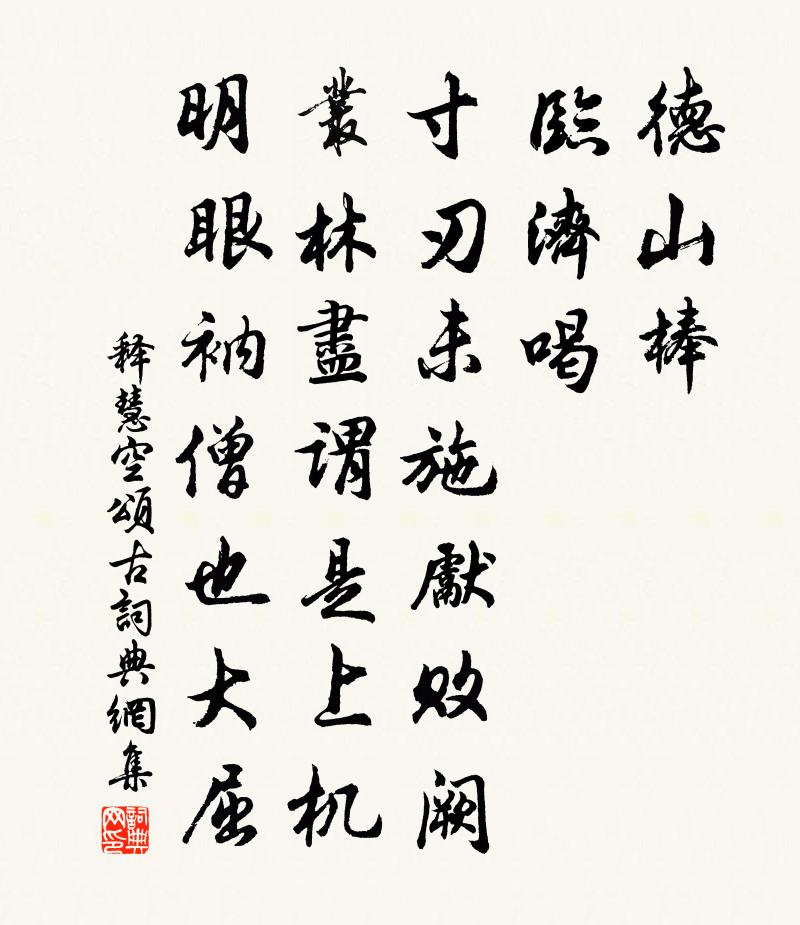 德山棒
臨濟喝
寸刃未施獻敗阙
叢林盡谓是上机
明眼衲僧也大屈
释慧空頌古詞典網集
詞典网印